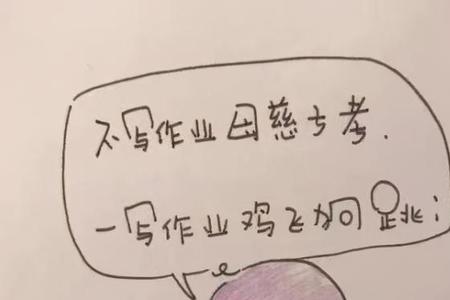 不写作业母慈子孝.
一写作业鸡飞狗跳;